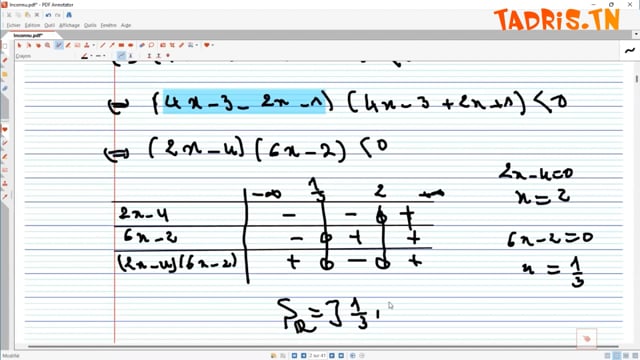 Inconnu.pdf* - PDF Annotator
TADRIS.TN
Fichier Edition Affichage Outils Extras Fenêtre Aide
Inconnu.pdf*
Crayon
⇔ (4x-3-2x-1)(4x-3+2x+1)<0
⇔ (2x-4)(6x-2)<0
2x-4=0
x=2
-∞ 1/3 2 +∞
2x-4 - - 0 +
6x-2 - 0 + +
(2x-4)(6x-2) + 0 - 0 +
6x-2=0
x=1/3
Sℝ=]1/3,
Modifié
2 sur 41